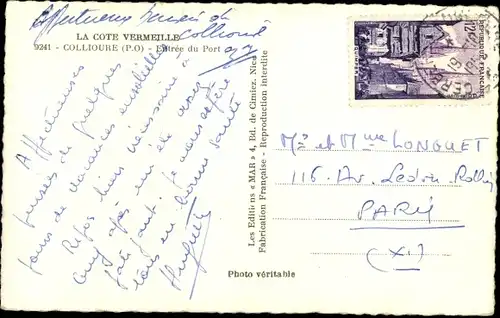 Affectueux
Collioure
LA COTE VERMEILLE
9241 - COLLIOURE (P.O) - Entrée du Port
Affectueuses
pensées de quelques
jours de vacances ensoleillées
Repos bien nécessaire à
Guy après un été assez
fatigant. Je vous espère
tous en bonne santé
Huguette
Les Editions "MAR" 4, Ed. de Cimiez, Nice
Fabrication Française - Reproduction interdite
Photo véritable
REPUBLIQUE FRANÇAISE
Mr et Mme LONGUET
116 Av. Ledru-Rollin
PARIS
(XI)